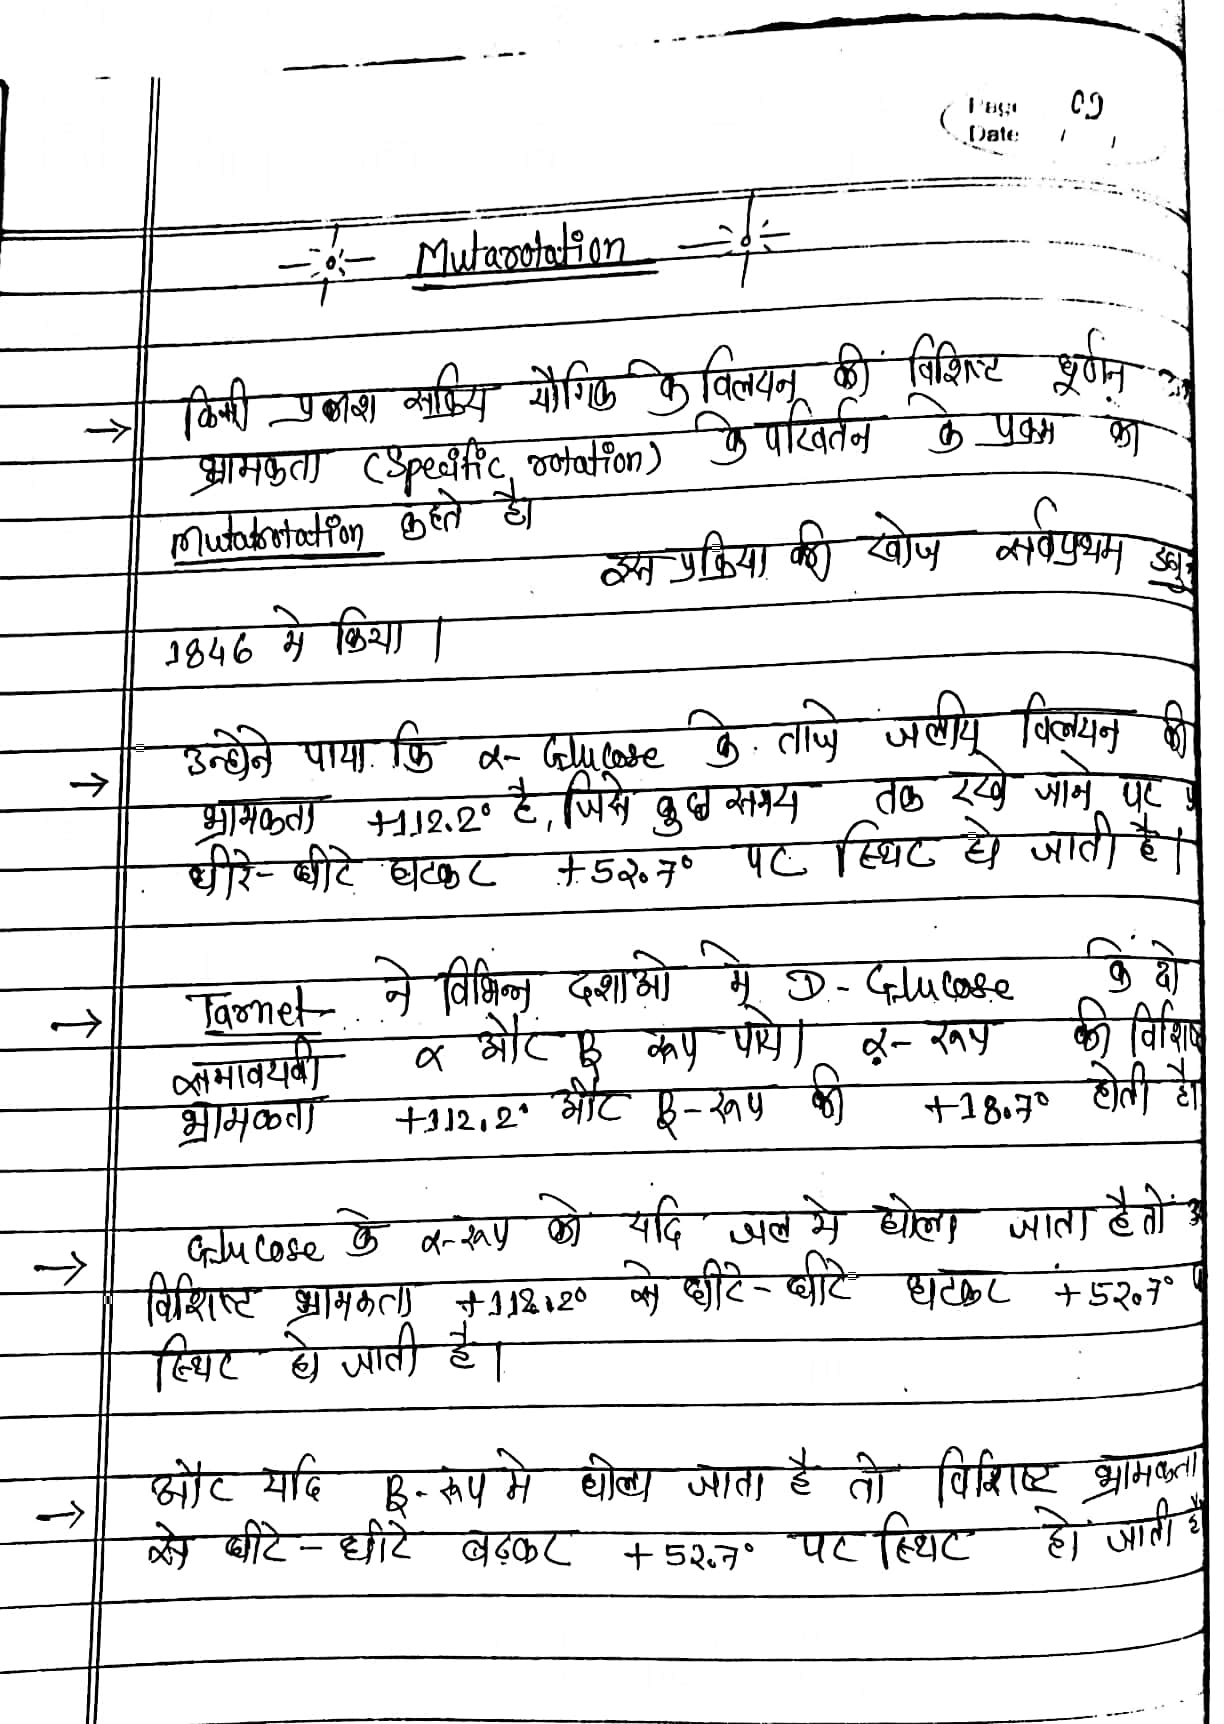 Page 09
Date / /
Mutarotation
→ किसी प्रकाश सक्रिय यौगिक के विलयन की विशिष्ट धूर्णन
भ्रामकता (Specific rotation) के परिवर्तन के प्रक्रम को
Mutarotation कहते है।
इस प्रक्रिया की खोज सर्वप्रथम
1846 मे किया।
→ उन्होने पाया कि α- Glucose के ताजे जलीय विलयन की
भ्रामकता +112.2° है, जिसे कुछ समय तक रखे जाने पर
धीरे-धीरे घटकर +52.7° पर स्थिर हो जाती है।
→ Tarnet ने विभिन्न दशाओ मे D- Glucose के दो
समावयवी α और β रूप पाये। α- रूप की विशिष्ट
भ्रामकता +112.2° और β-रूप की +18.7° होती है।
→ Glucose के α-रूप को यदि जल मे घोला जाता है तो
विशिष्ट भ्रामकता +112.2° से धीरे-धीरे घटकर +52.7°
स्थिर हो जाती है।
→ और यदि β-रूप मे घोला जाता है तो विशिष्ट भ्रामकता
से धीरे-धीरे बढ़कर +52.7° पर स्थिर हो जाती है